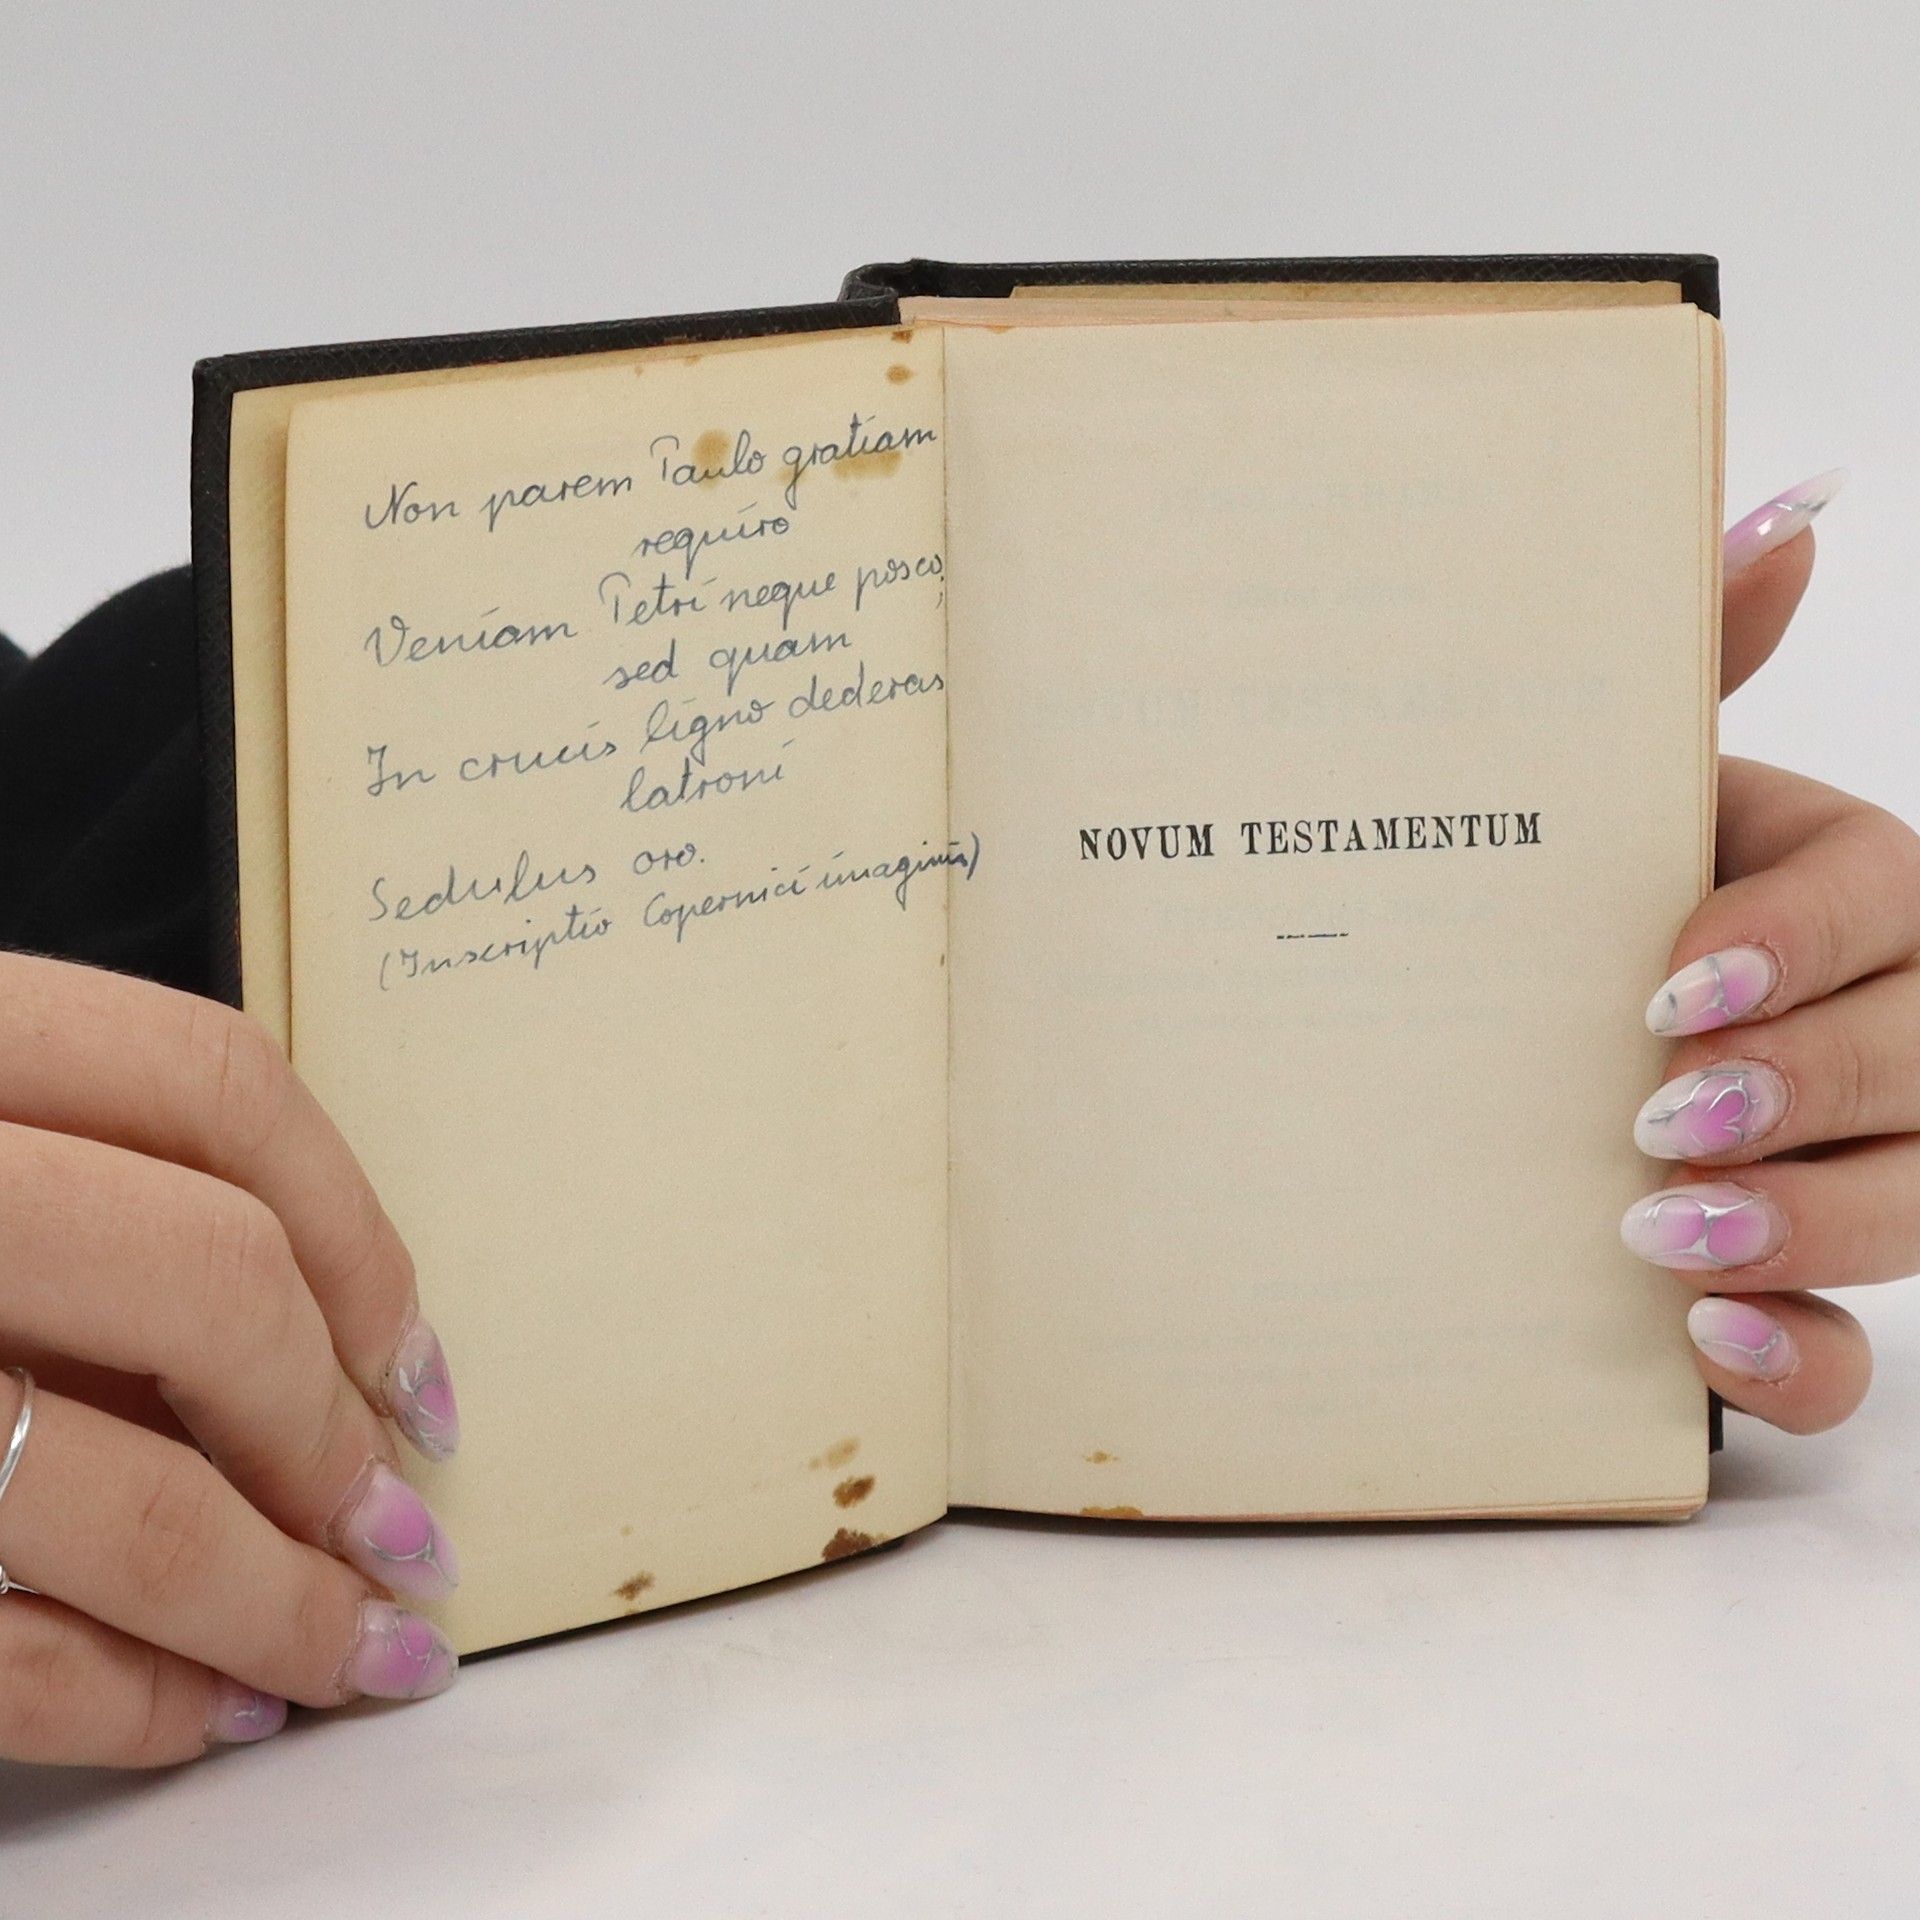 Non parem Paulo gratiam
requiro
Veniam Petri neque posco,
sed quam
In crucis ligno dederas
latroni
Sedulus oro.
(Inscriptio Copernici imaginis)
NOVUM TESTAMENTUM